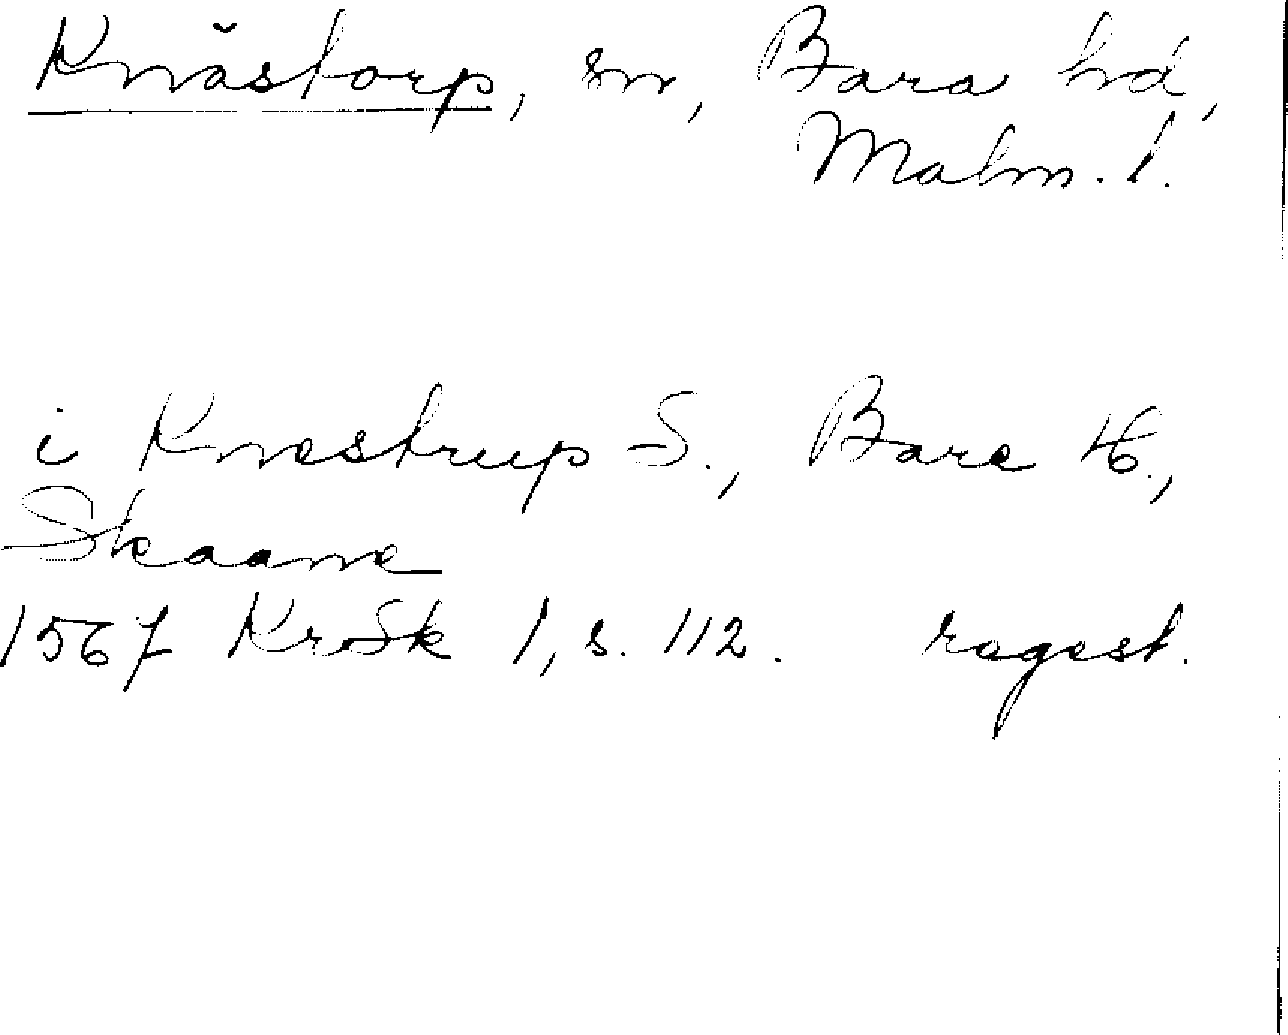 Knästorp, sn, Bara hd,
Malm. l.
i Knestrup S., Bare H.,
Skaane
1567 KroSk 1, s. 112. regest.